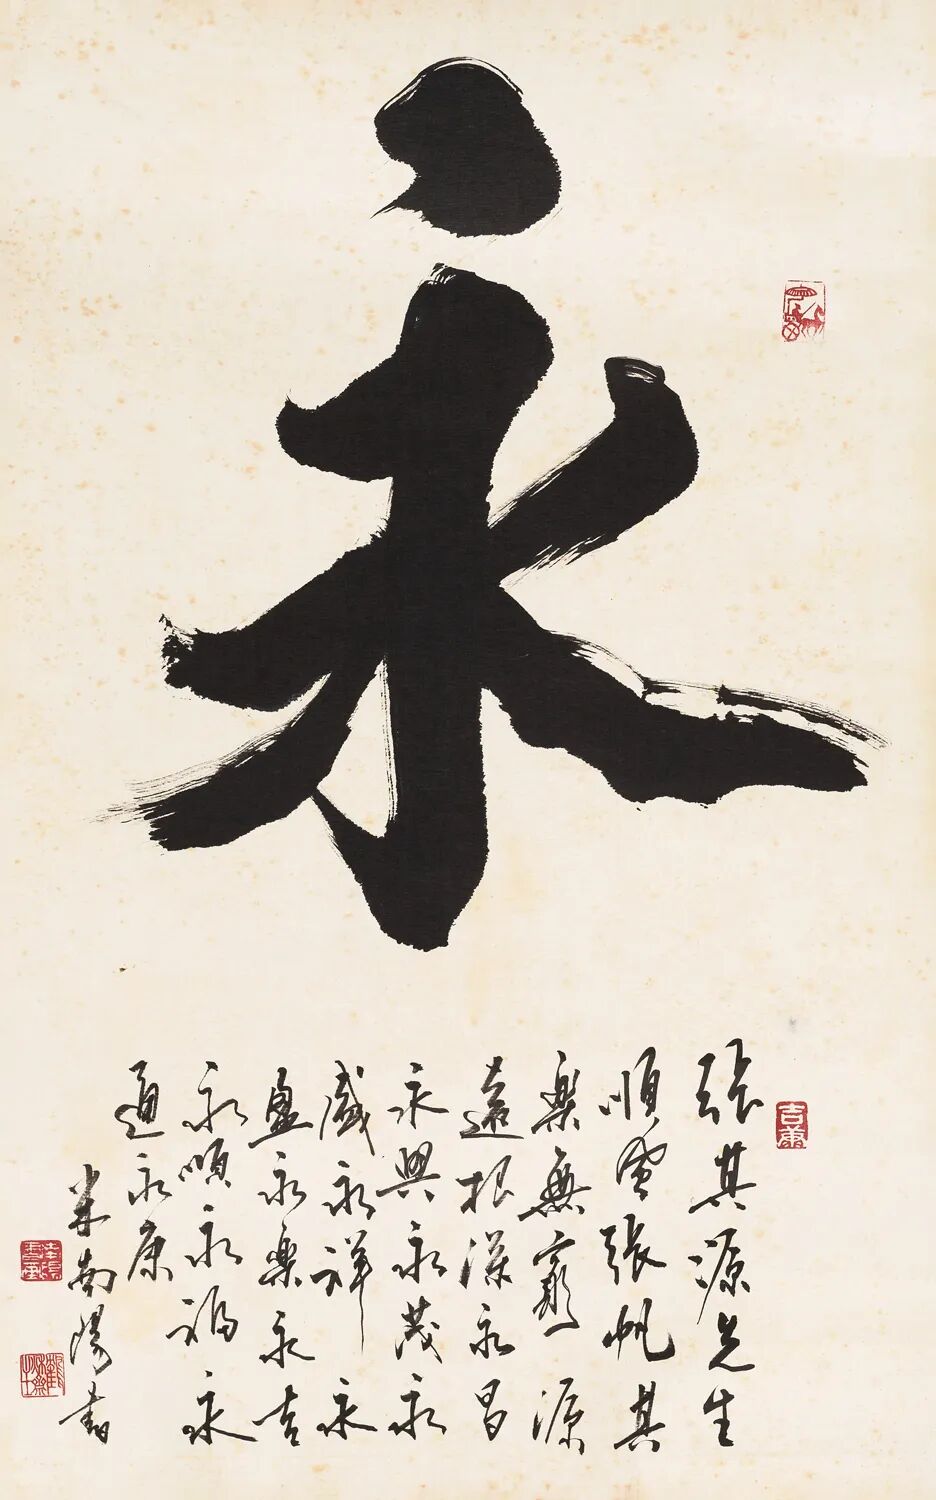 永
張其源先生
順風張帆其
樂無窮源
遠根深永昌
永興永茂永
盛永祥永
盈永樂永吉
永順永福永
通永康
米南陽書